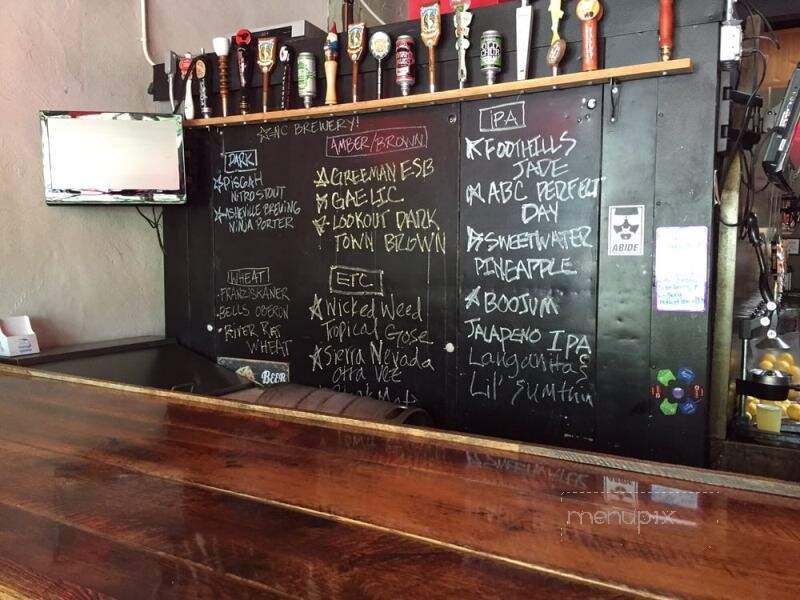 NC BREWERY!
DARK
PISGAH
NITRO STOUT
ASHEVILLE BREWING
NINJA PORTER
WHEAT
FRANZISKANER
BELLS OBERON
RIVER RAT
WHEAT
BEER
AMBER/BROWN
GREEMAN ESB
GAELIC
LOOKOUT DARK
TOWN BROWN
ETC
WICKED WEED
TROPICAL GOSE
SIERRA NEVADA
OTRA VEZ
IPA
FOOTHILLS
JADE
ABC PERFECT
DAY
SWEETWATER
PINEAPPLE
BOOJUM
JALAPENO IPA
LANGANITAS
LIL' SUMTHIN
ABIDE
menupix